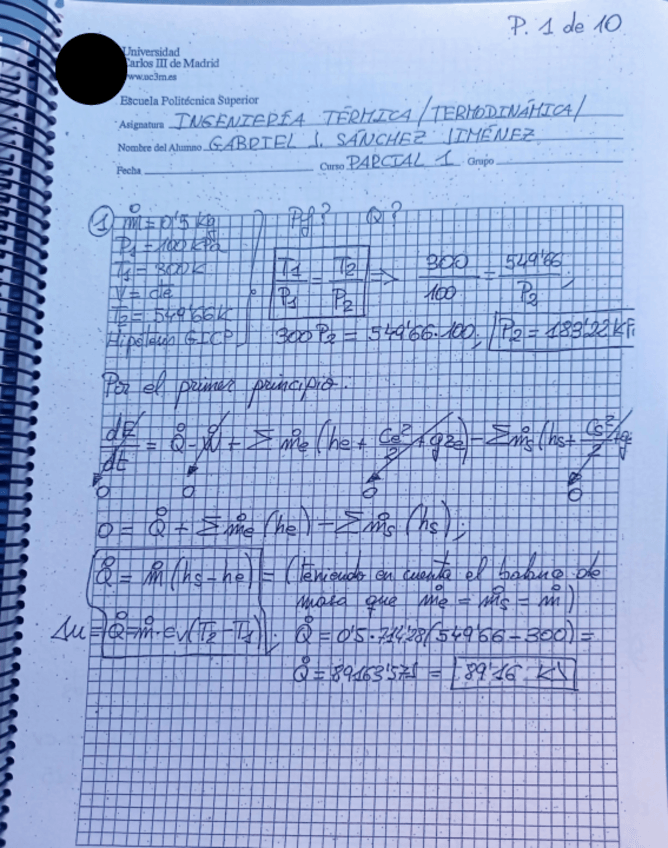 P. 1 de 10
Universidad
Carlos III de Madrid
www.uc3m.es
Escuela Politécnica Superior
Asignatura INGENIERÍA TÉRMICA/TERMODINÁMICA/
Nombre del Alumno GABRIEL J. SÁNCHEZ JIMÉNEZ
Fecha Curso PARCIAL 1 Grupo
① ṁ = 0'5 kg Pf? Q?
P1 = 100 kPa
T1 = 300 K T1/P1 = T2/P2 => 300/100 = 549'66/P2;
V = cte
T2 = 549'66 K
Hipótesis G.I.C.P 300 P2 = 549'66·100; P2 = 183'22 KP
Por el primer principio.
dE/dt = Q̇ - Ẇ + Σ ṁe (he + Ce²/2 + gze) - Σ ṁs (hs + Cs²/2 + g
0 0 0 0
0 = Q̇ + Σ ṁe (he) - Σ ṁs (hs);
Q̇ = ṁ (hs - he) = (Teniendo en cuenta el balance de
masa que ṁe = ṁs = ṁ)
Δu = Q̇ = ṁ · cv (T2 - T1); Q̇ = 0'5 · 714'28 (549'66 - 300) =
Q̇ = 89163'571 = 89'16 KJ